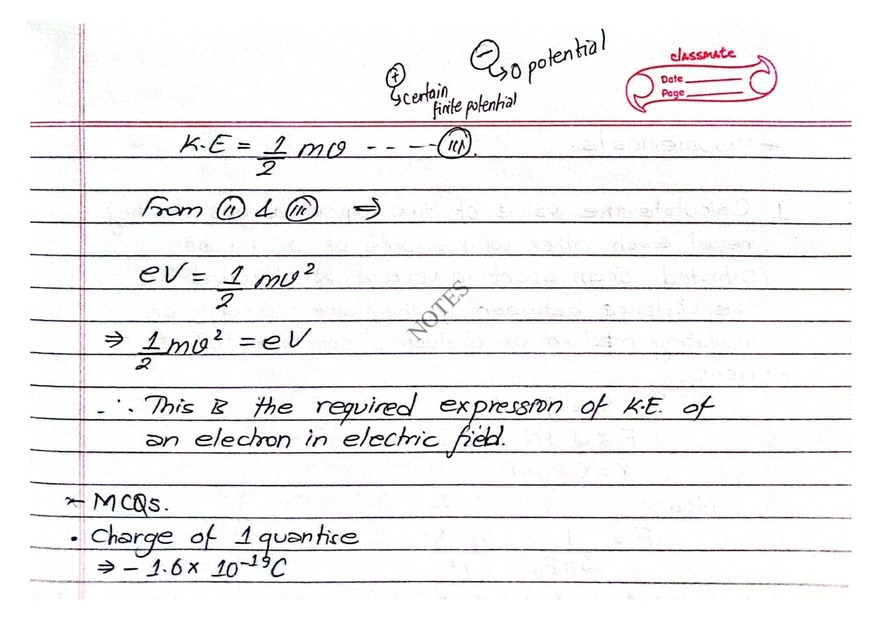 ⊕ ↳ certain finite potential
⊖ ↳ 0 potential
classmate
Date
Page
K.E = 1/2 mv ---- (iii).
From (ii) & (iii) ⇒
eV = 1/2 mv²
⇒ 1/2 mv² = eV
NOTES
∴ This is the required expression of K.E. of
an electron in electric field.
* MCQs.
• Charge of 1 quantise
⇒ - 1.6 x 10⁻¹⁹C